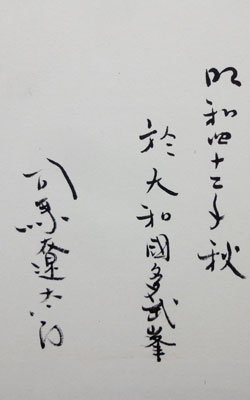 昭和四十二年秋
於大和國多武峯
司馬遼太郎